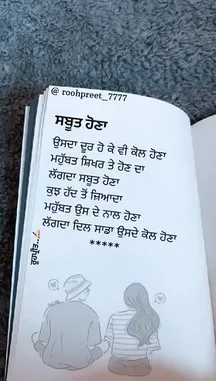 @ roohpreet_7777
ਸਬੂਤ ਹੋਣਾ
ਉਸਦਾ ਦੂਰ ਹੋ ਕੇ ਵੀ ਕੋਲ ਹੋਣਾ
ਮਹੁੱਬਤ ਸਿਖਰ ਤੇ ਹੋਣ ਦਾ
ਲੱਗਦਾ ਸਬੂਤ ਹੋਣਾ
ਕੁਝ ਹੱਦ ਤੋਂ ਜ਼ਿਆਦਾ
ਮਹੁੱਬਤ ਉਸ ਦੇ ਨਾਲ ਹੋਣਾ
ਲੱਗਦਾ ਦਿਲ ਸਾਡਾ ਉਸਦੇ ਕੋਲ ਹੋਣਾ
*****
ਰੂਹਪ੍ਰੀਤ...